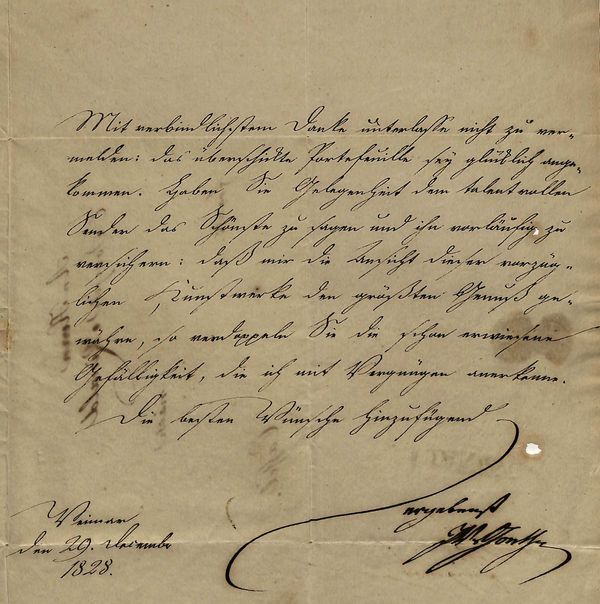 Mit verbindlichstem Danke unterlasse nicht zu ver-
melden: das überschickte Portefeuille sey glücklich ange-
kommen. Haben Sie Gelegenheit dem talentvollen
Sender das Schönste zu sagen und ihn vorläufig zu
versichern: daß mir die Ansicht dieser vorzüg-
lichen Kunstwerke den größten Genuß ge-
währe, so verdoppeln Sie die schon erwiesene
Gefälligkeit, die ich mit Vergnügen anerkenne.
Die besten Wünsche hinzufügend
ergebenst
JWvGoethe
Weimar
den 29. Decembr
1828.